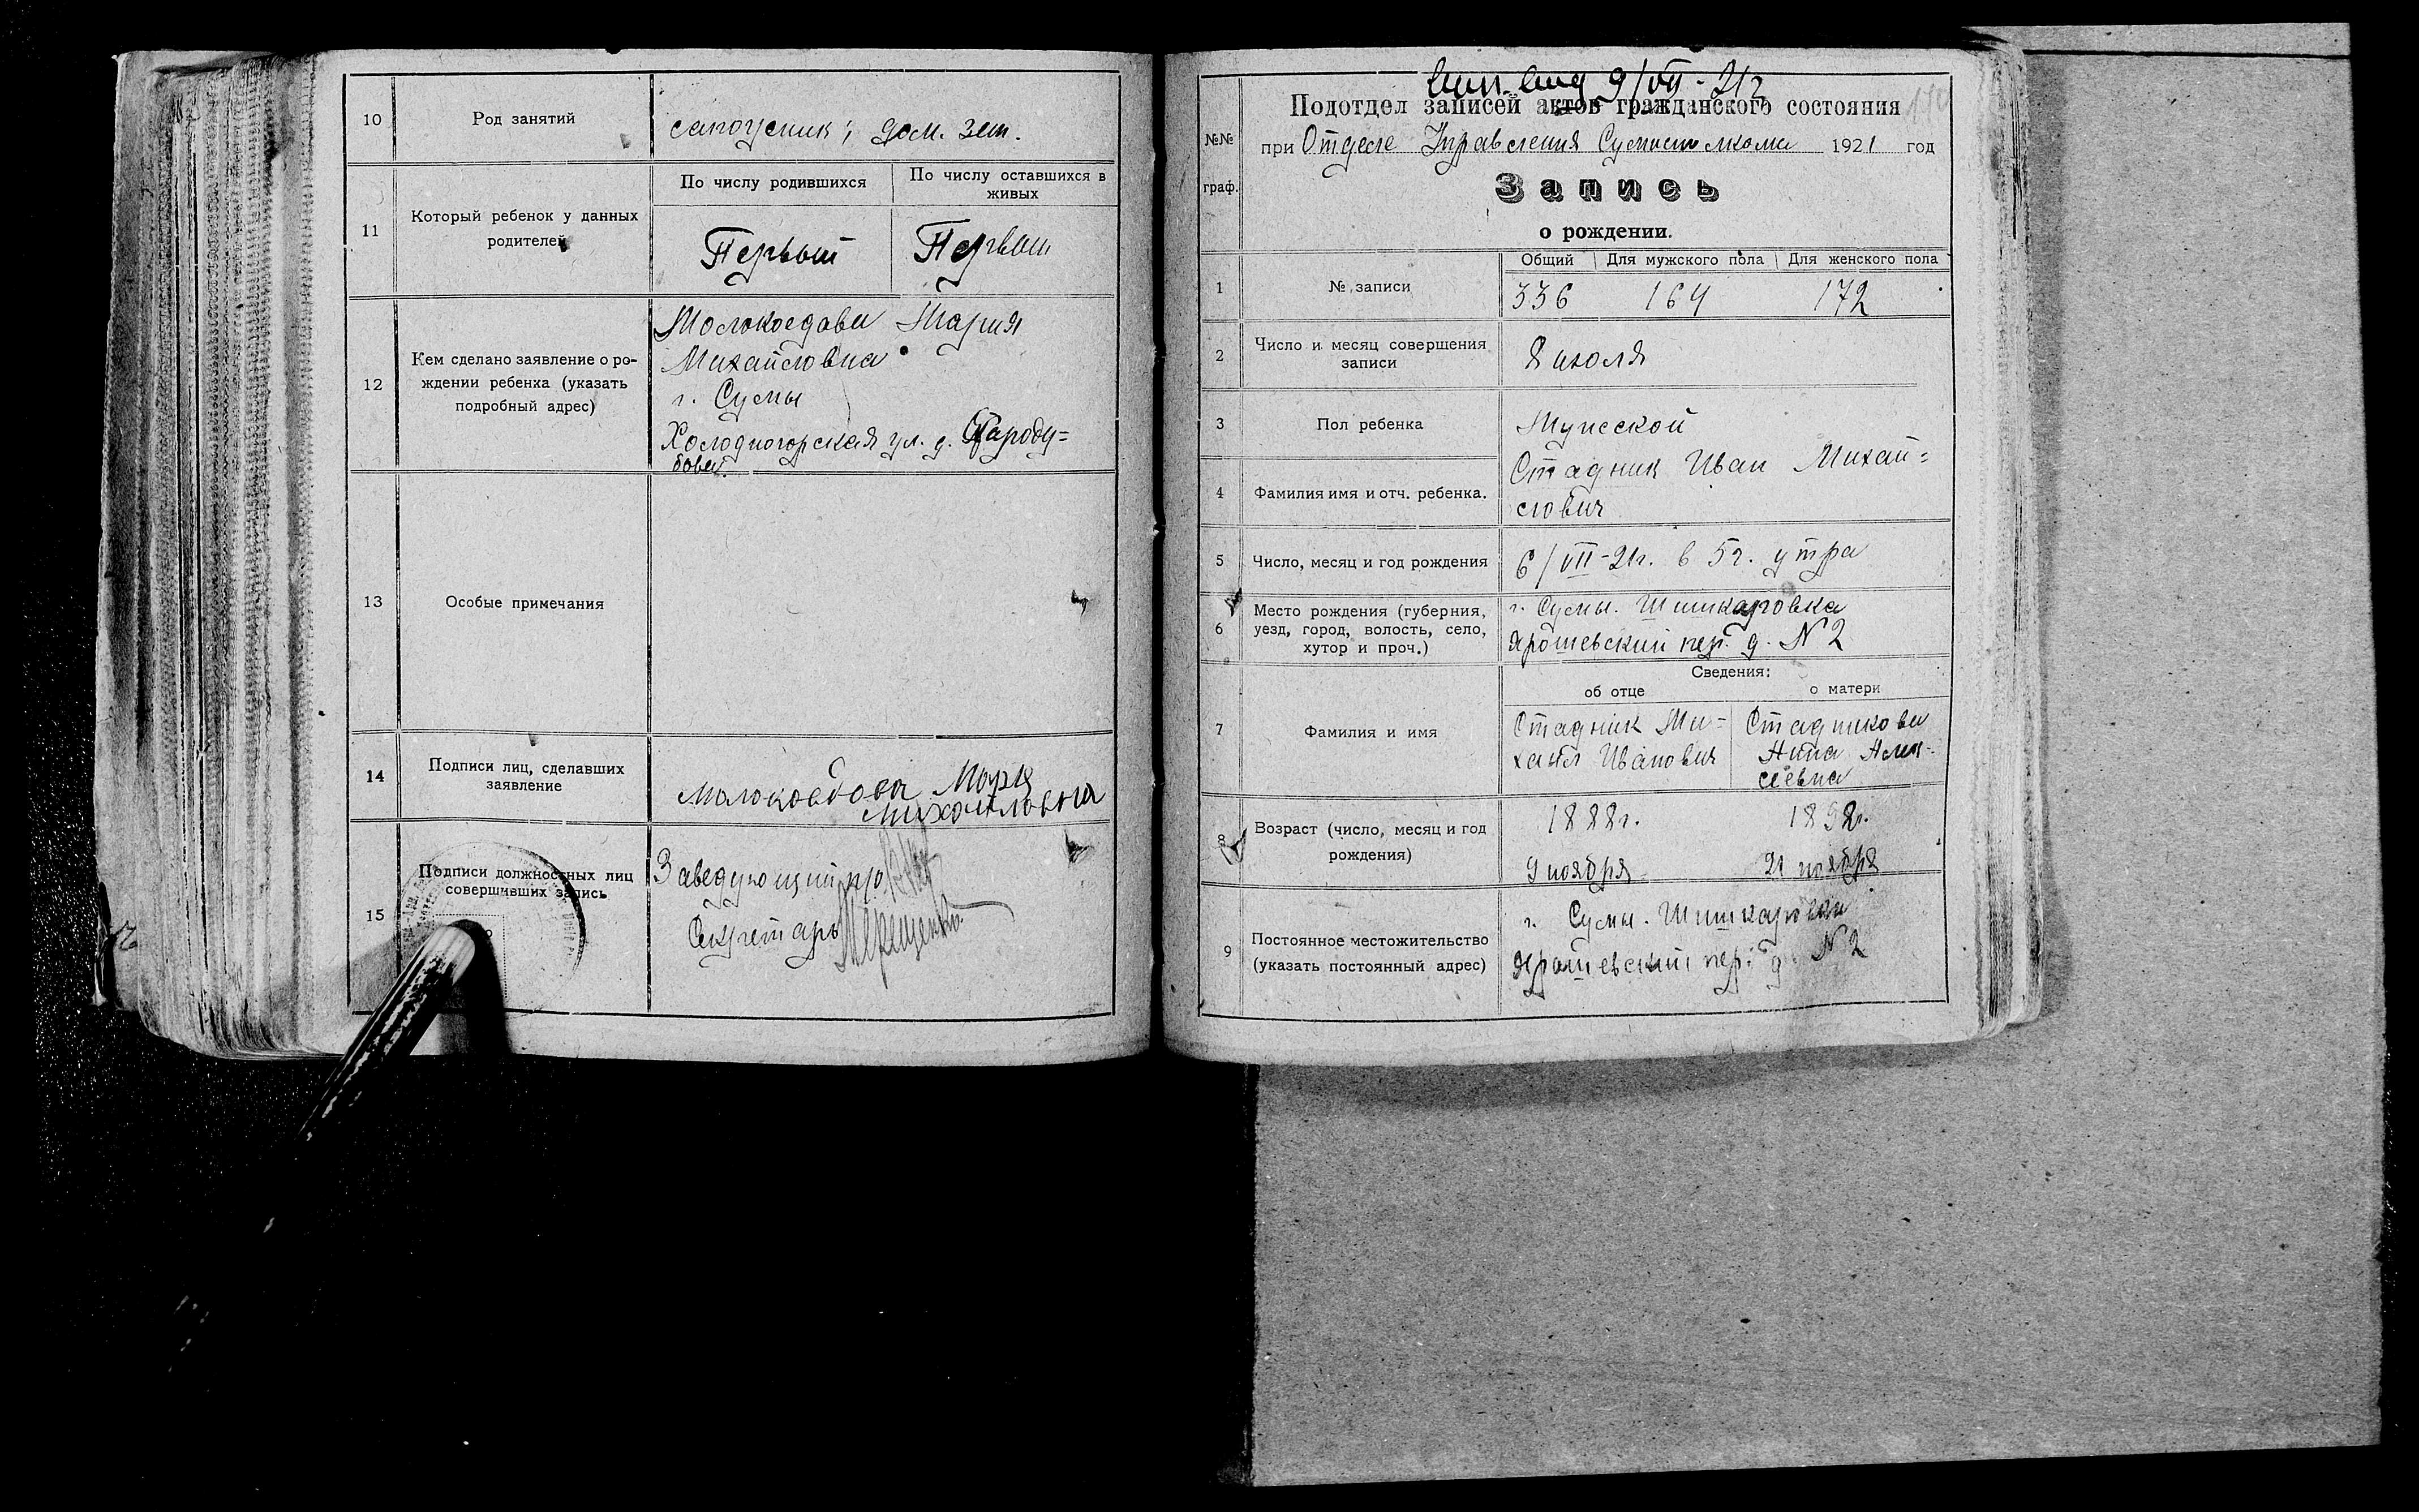 10 Род занятий сапожник; дом. зан.
11 Который ребенок у данных родителей
По числу родившихся По числу оставшихся в живых
Первый Первый
12 Кем сделано заявление о ро-
ждении ребенка (указать
подробный адрес)
Молокоедова Мария
Михайловна
г. Сумы
Холодногорская ул. д. Староду=
бова
13 Особые примечания
14 Подписи лиц, сделавших
заявление
Молокоедова Мария
Михайловна
15 Подписи должностных лиц
совершивших запись
Заведующий п/о
Секретарь Терещенко
9/VII-21г
Подотдел записей актов гражданского состояния
№№ граф.
при Отделе Управления 1921 год
Запись
о рождении.
1 № записи
Общий Для мужского пола Для женского пола
336 164 172
2 Число и месяц совершения
записи
8 июля
3 Пол ребенка Мужской
4 Фамилия имя и отч. ребенка.
Стадник Иван Михай=
лович
5 Число, месяц и год рождения 6/VII-21г. в 5ч. утра
6 Место рождения (губерния,
уезд, город, волость, село,
хутор и проч.)
г. Сумы. Шишкаровка
Ярошевский пер. д. N 2
Сведения:
об отце о матери
7 Фамилия и имя
Стадник Ми=
хаил Иванович
Стадникова
Нина Алек-
сеевна
8 Возраст (число, месяц и год
рождения)
1888г. 1898г.
9 ноября 21 ноября
9 Постоянное местожительство
(указать постоянный адрес)
г. Сумы. Шишкаровка
Ярошевский пер. д. N 2